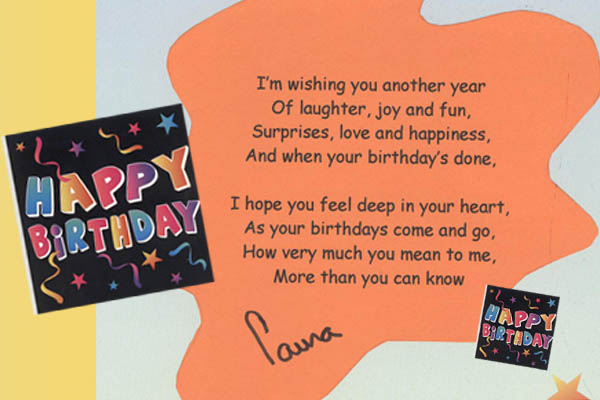 HAPPY
BIRTHDAY
I'm wishing you another year
Of laughter, joy and fun,
Surprises, love and happiness,
And when your birthday's done,
I hope you feel deep in your heart,
As your birthdays come and go,
How very much you mean to me,
More than you can know
HAPPY
BIRTHDAY